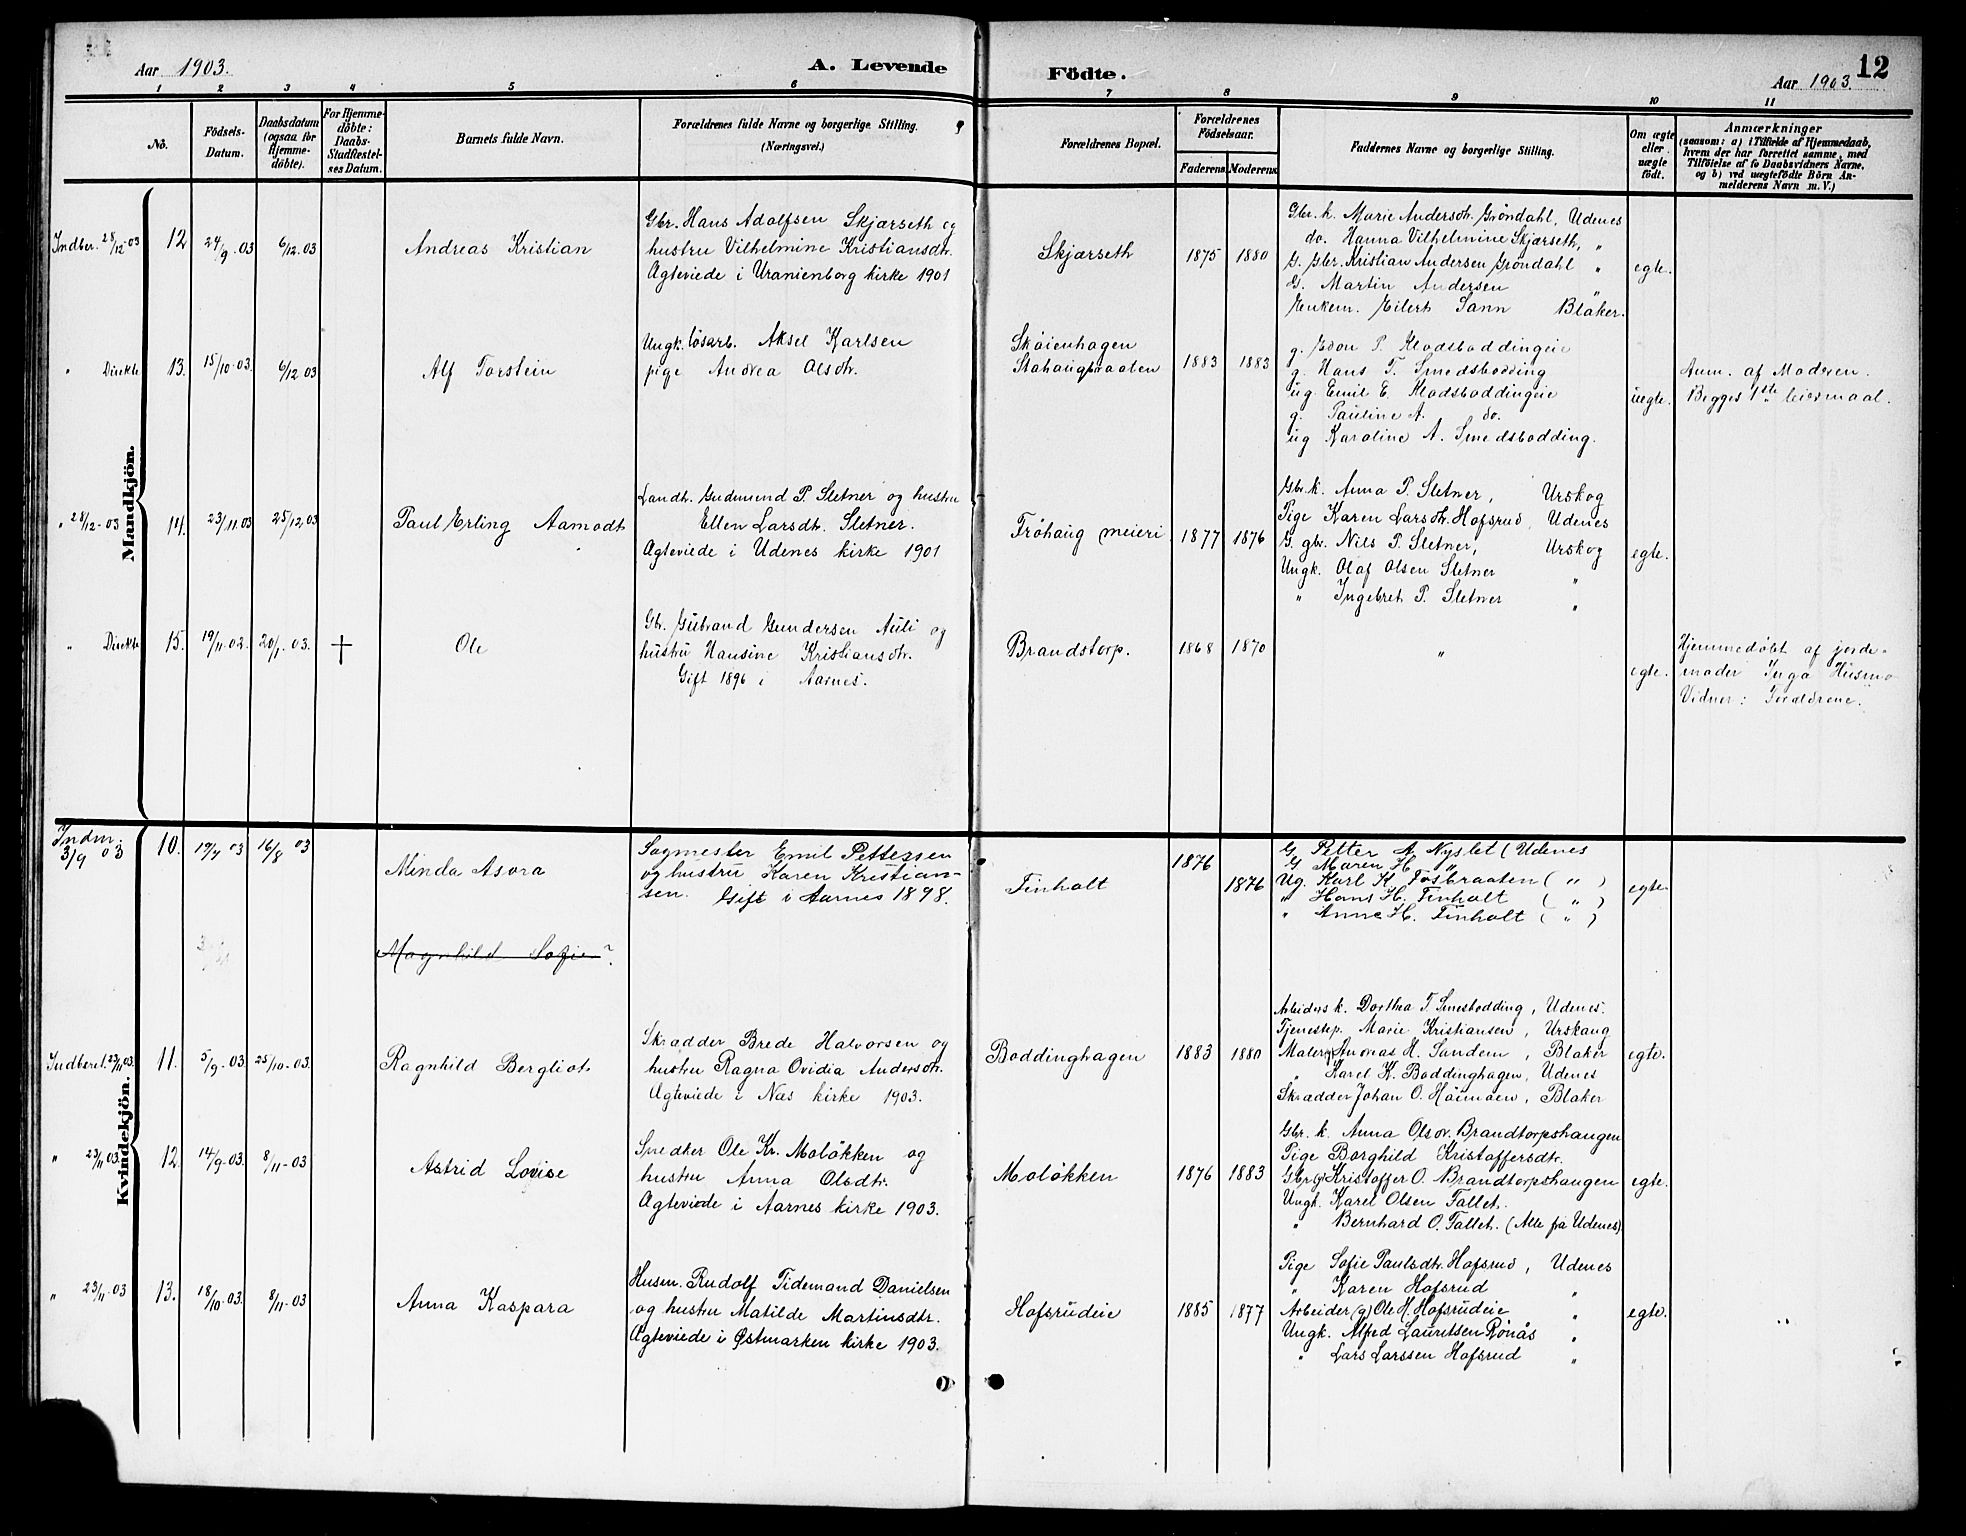 Aar 1903.
A. Levende Födte.
12
Aar 1903.
1 2 3 4 5 6 7 8 9 10 11
No.
Födsels-Datum.
Daabsdatum (ogsaa for Hjemmedöbte).
For Hjemmedöbte: Daabs-Stadfæstelses Datum.
Barnets fulde Navn.
Forældrenes fulde Navne og borgerlige Stilling. (Næringsvei.)
Forældrenes Bopæl.
Forældrenes Födselsaar.
Faderens. Moderens.
Faddernes Navne og borgerlige Stilling.
Om ægte eller uægte födt.
Anmærkninger
(saasom: a) i Tilfælde af Hjemmedaab, hvem der har forrettet samme, med Tilföielse af to Daabsvidners Navne, og b) ved uægtefödte Börn Anmelderens Navn m. V.)
Mandkjön.
Indber. 28/12-03 12 24/9 03 6/12 03
Andreas Kristian
Gbr. Hans Adolfsen Skjærseth og
hustru Vilhelmine Kristiansdtr.
Ægteviede i Uranienborg kirke 1901
Skjærseth
1875 1880
Gbr. k. Marie Andersdtr. Grøndahl, Udenes
do. Hanna Vilhelmine Skjærseth, "
G. Gbr. Kristian Andersen Grøndahl "
G. Martin Andersen "
Enkem. Eilert Sann Blaker.
egte.
" Direkte 13. 15/10-03. 6/12 03
Alf Torstein
Ungk. løsarb. Aksel Karlsen
pige Andrea Olsdtr.
Skøienhagen
Stahaugbraaten
1883 1883
g. P. Klodsboddingeie
g. Hans T. Smedsbodding
ug. Emil E. Klodsboddingeie
g. Pauline A. do.
ug Karoline A. Smedsbodding.
uegte.
Anm. af Moderen.
Begges 1ste leiermaal.
" 28/12-03 14. 23/11 03 25/12 03
Paul Erling Aamodt
Landh. Gudmund P. Sletner og hustru
Ellen Larsdtr. Sletner.
Ægteviede i Udenes kirke 1901
Frøhaug meieri
1877 1876
Gbr. k. Anna P. Sletner, Urskog
Pige Karen Larsdtr. Hofsrud, Udenes
G. gbr. Nils P. Sletner, Urskog
Ungk. Olaf Olsen Sletner "
" Ingebret P. Sletner "
egte.
" Direkte 15. 19/11-02. 20/1 03. +
Ole
Gbr. Gutbrand Gundersen Auli og
hustru Hansine Kristiansdtr.
Gift 1896 i Aarnes.
Brandstorp.
1868 1870
"
egte.
Hjemmedøbt af jorde-
moder Inga Husmo
Vidner: Forældrene.
Kvindekjön.
Indm. 3/9 03 10. 19/7 03 16/8 03
Minda Asora
Sagmester Emil Pettersen
og hustru Karen Kristian-
sen. Gift i Aarnes 1898.
Finholt
1876
1876
G Petter A Nyslet (Udenes
G Maren H. "
Ug. Karl K. Fosbraaten ( " )
" Hans H. Finholt ( " )
" Anne H. Finholt ( " )
egte
Magnhild Sofie?
Indberet. 23/11 03. 11. 5/9-03. 25/10-03.
Ragnhild Bergliot
Skrædder Brede Halvorsen og
hustru Ragna Ovidia Andersdtr.
Ægteviede i Næs kirke 1903.
Boddinghagen
1883 1880
Arbeiders k. Dorthea T. Smesbodding, Udenes.
Tjenestep. Marie Kristiansen, Urskaug
Maler (g) Andreas H. Sandem, Blaker
" Karel K. Boddinghagen, Udenes
Skrædder Johan O. Høimoen, Blaker
egte.
" 23/11 03. 12 14/9-03. 8/11-03
Astrid Lovise
Snedker Ole Kr. Moløkken og
hustru Anna Olsdtr.
Ægteviede i Aarnes kirke 1903.
Moløkken
1876 1883
Gbr. k. Anna Olsdr. Brandtorpshaugen
Pige Borghild Kristoffersdtr.
Gbr (g) Kristoffer O. Brandtorpshaugen
Ungk. Karel Olsen Fallet.
" Bernhard O. Fallet. (Alle fra Udenes)
egte.
" 23/11-03 13. 18/10-03. 8/11-03
Anna Kaspara
Husm. Rudolf Tidemand Danielsen
og hustru Matilde Martinsdtr.
Ægteviede i Østmarken kirke 1903.
Hofsrudeie
1885 1877
Pige Sofie Paulsdtr. Hofsrud, Udenes
" Karen Hofsrud "
Arbeider (g) Ole H. Hofsrudeie "
Ungk. Alfred Lauritsen Rønås "
" Lars Larssen Hofsrud "
egte.